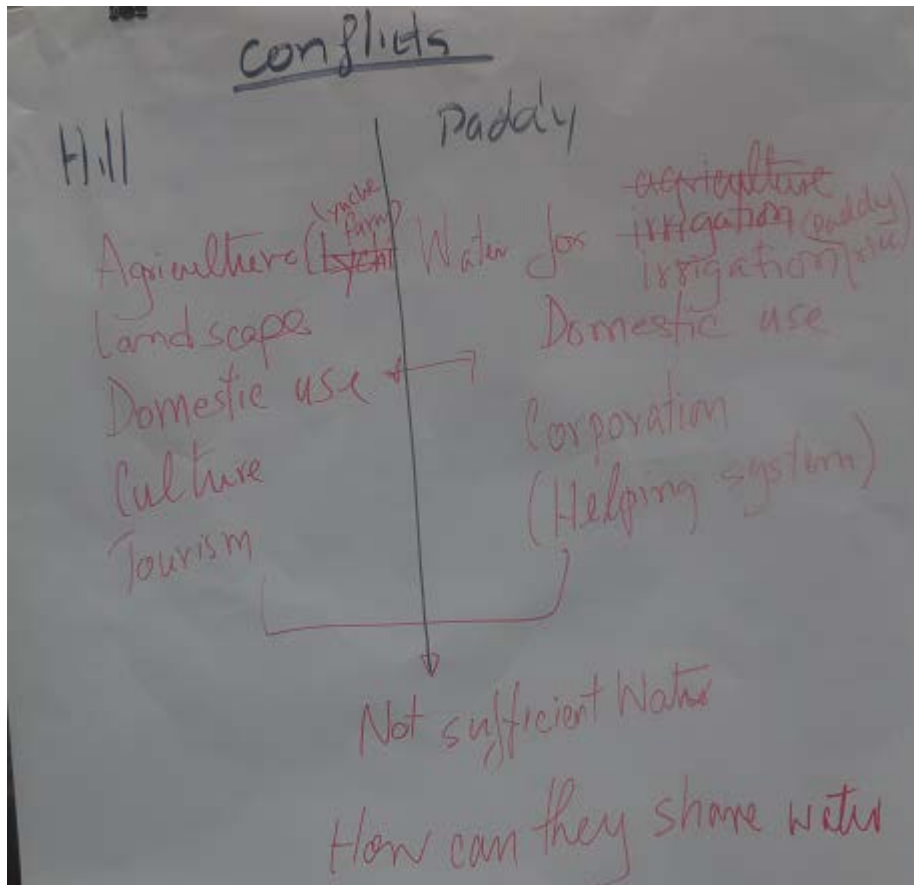 Conflicts
Hill
Agriculture (
farm
Landscape
Domestic use
Culture
Tourism
Paddy
Water for agriculture
irrigation (paddy)
irrigation (rice)
Domestic use
Corporation
(Helping system)
Not sufficient Water
How can they share water